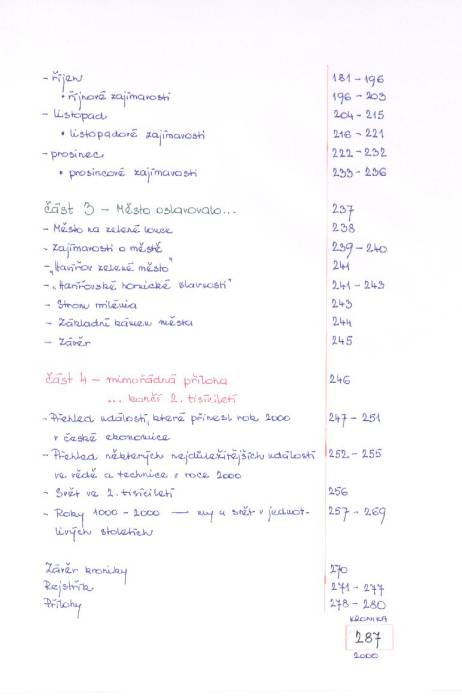 - říjen 181 - 196
• říjnové zajímavosti 196 - 203
- listopad 204 - 215
• listopadové zajímavosti 216 - 221
- prosinec 222 - 232
• prosincové zajímavosti 233 - 236
část 3 - Město oslavovalo... 237
- Město na zelené louce 238
- Zajímavosti o městě 239 - 240
- „Havířov zelené město" 241
- „Havířovské hornické slavnosti" 241 - 243
- Strom milénia 243
- Základní kámen města 244
- Závěr 245
část 4 - mimořádná příloha 246
... končí 2. tisíciletí
- Přehled událostí, které přinesl rok 2000 247 - 251
v české ekonomice
- Přehled některých nejdůležitějších událostí 252 - 255
ve vědě a technice v roce 2000
- Svět ve 2. tisíciletí 256
- Roky 1000 - 2000 — my a svět v jednot- 257 - 269
livých stoletích
Závěr kroniky 270
Rejstřík 271 - 277
Přílohy 278 - 280
KRONIKA
287
2000